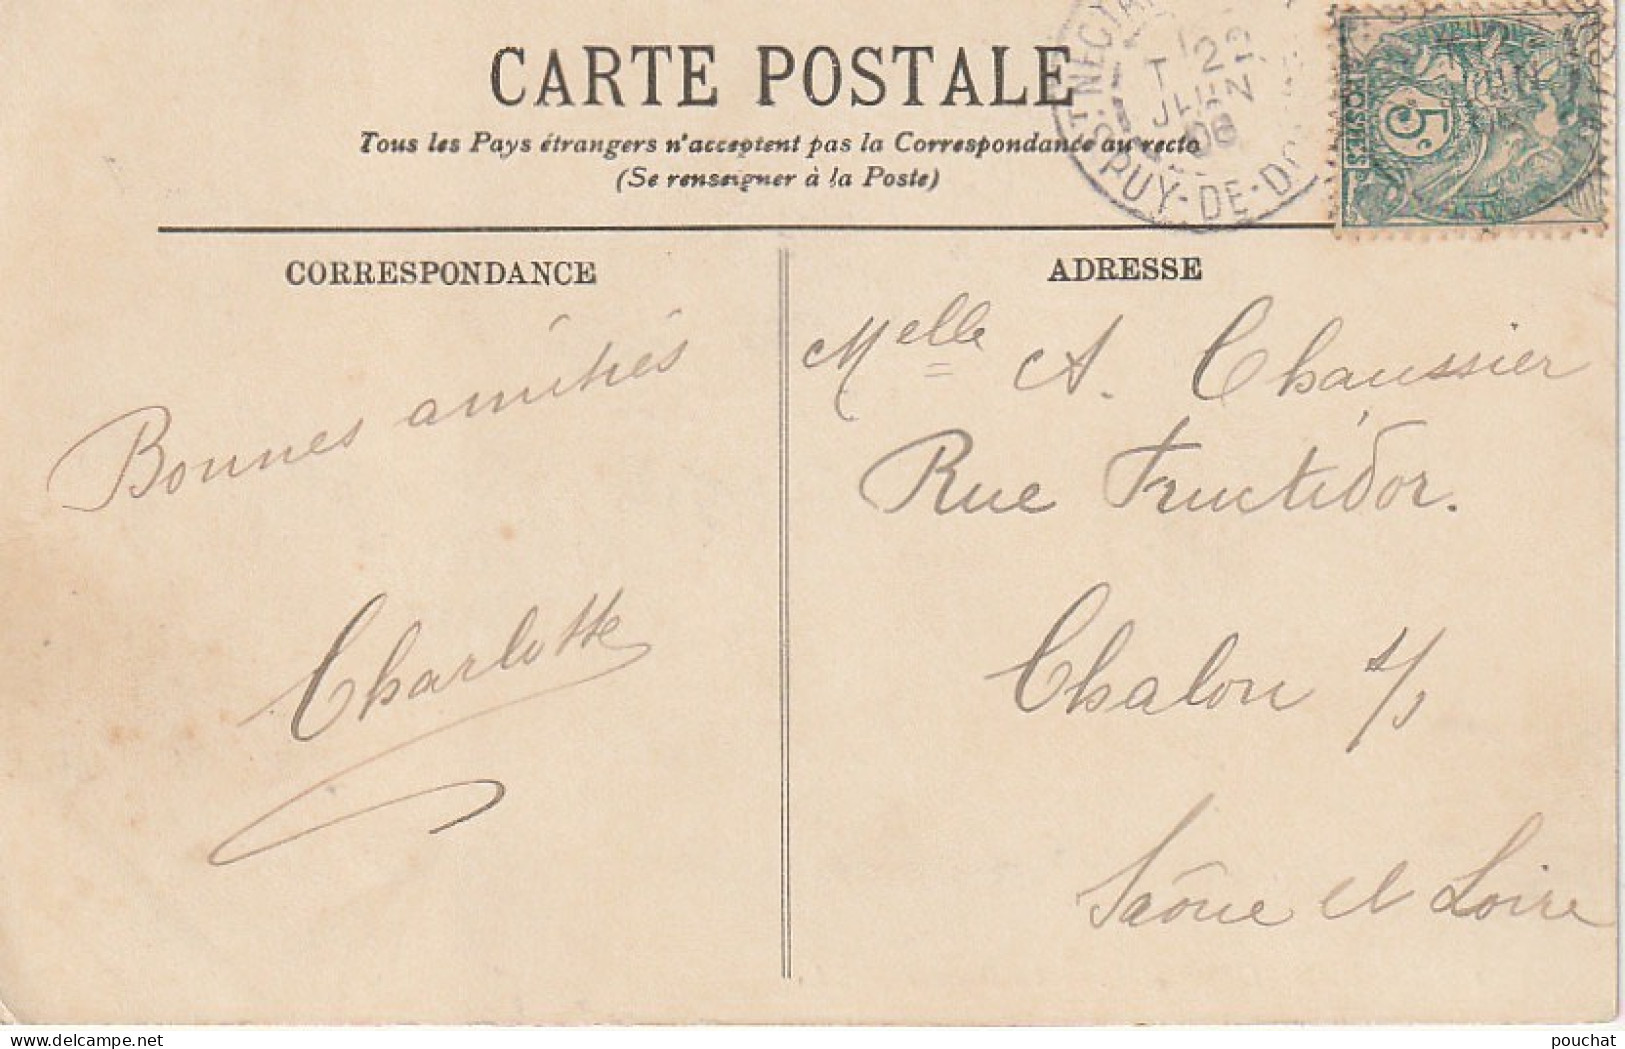 CARTE POSTALE
Tous les Pays étrangers n'acceptent pas la Correspondance au recto
(Se renseigner à la Poste)
ST NECTAI
22
JUIN
08
PUY-DE-DO
5c
POSTES
CORRESPONDANCE
ADRESSE
Bonnes amitiés
Charlotte
Melle A. Chaussier
Rue Fructidor.
Chalon s/s
Saône et Loire
pouchat